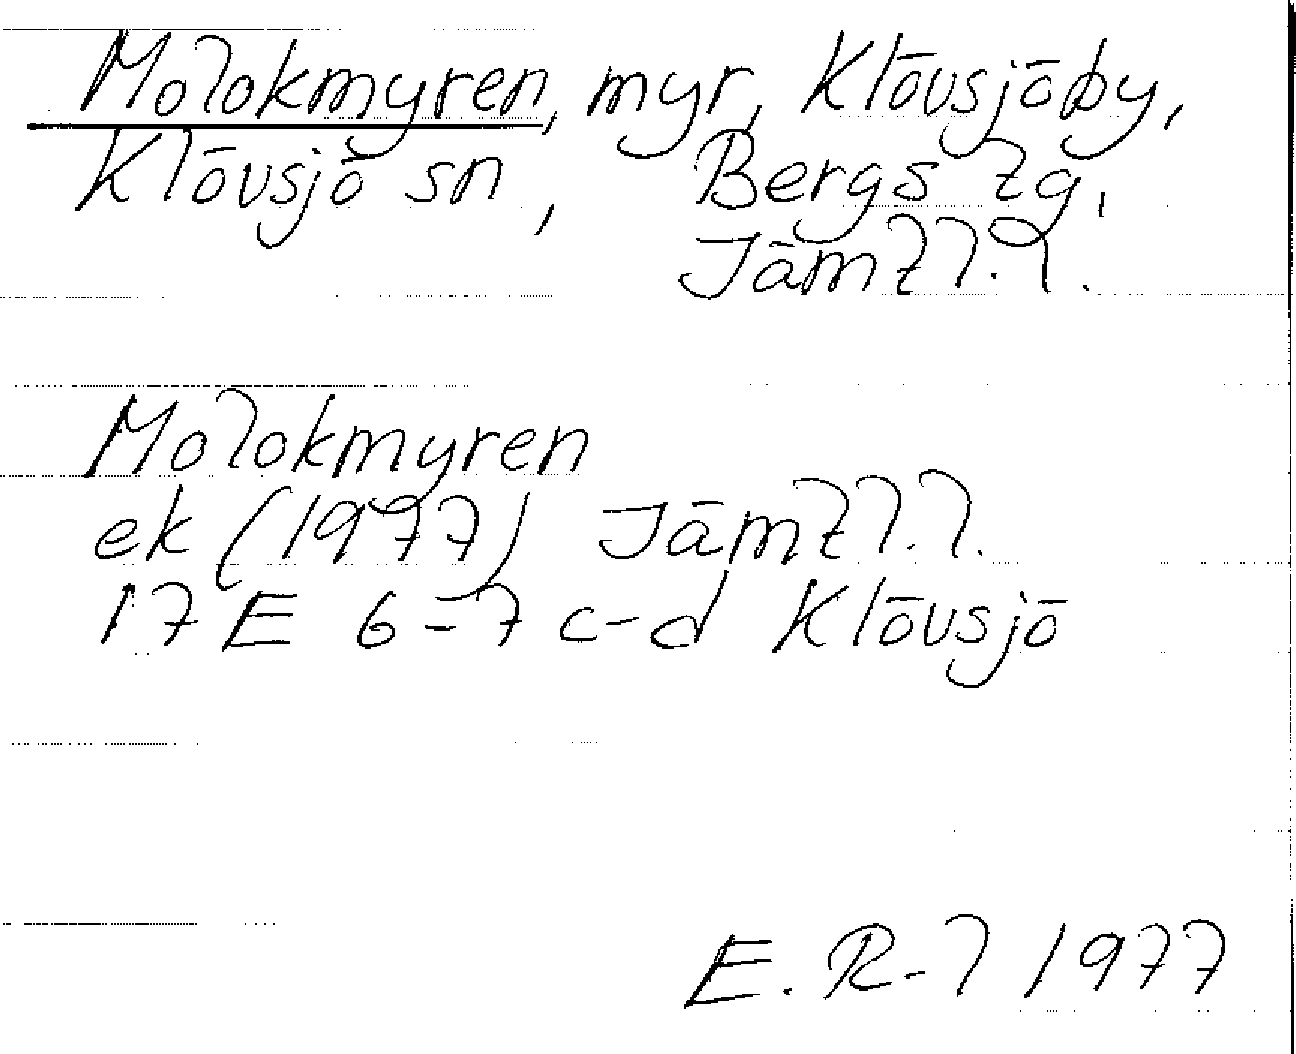 Molokmyren, myr, Klövsjö by,
Klövsjö sn, Bergs tg,
Jämtl. l.
Molokmyren
ek (1977) Jämtl. l.
17 E 6-7 c-d Klövsjö
E. R-l 1977